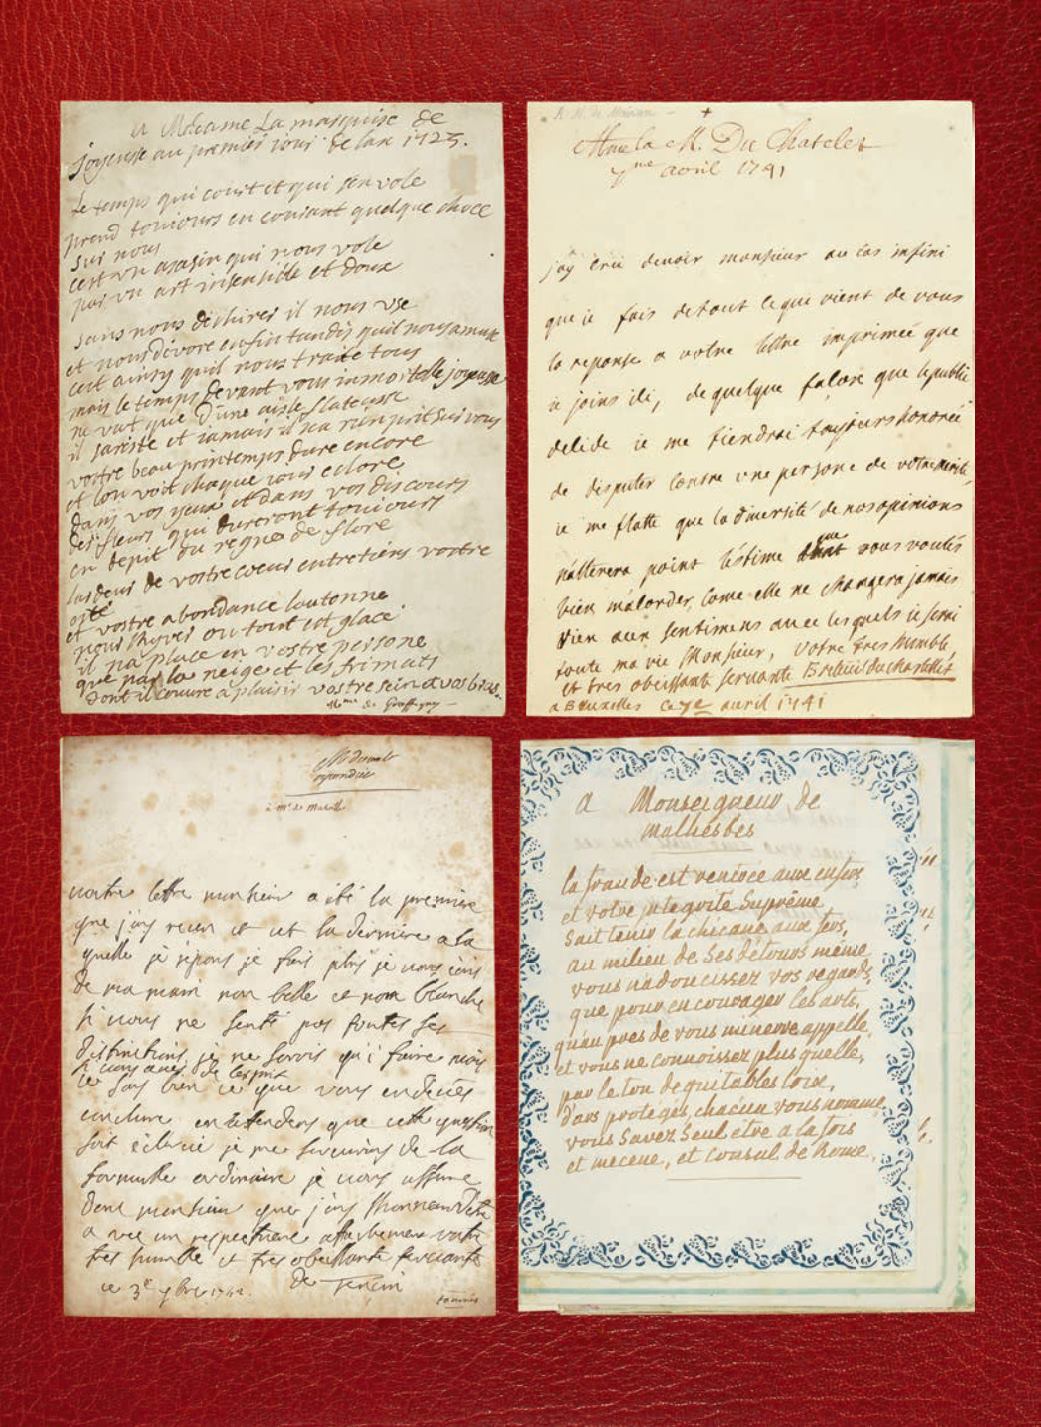 a Mdame La marquise de
joyeuse au premier iour de lan 1725.
Le temps qui court et qui s'envole
prend touiours en courant quelque chose
sur nous
cest un asasin qui nous vole
par un art insensible et doux
sans nous dechirer il nous use
et nous devore enfin tandis quil nous amuse
cest ainsy quil nous traite tous
mais le temps devant vous immortelle joyeuse
ne vat que d'une aisle flateuse
il sareste et iamais il na rien prit sur vous
vostre beau printemps dure encore
et lon voit chaque iour eclore
dans vos yeux et dans vos discours
des fleurs qui dureront touiours
en depit du regne de flore
lardeur de vostre coeur entretient vostre
esté
et vostre abondance lautonne
pour lhyver ou tout est glacé
il na place en vostre persone
que par la neige et les frimats
dont il couvre a plaisir vostre sein et vos bras.
Mme de Graffigny
Mme la M. Du Chatelet
7me avril 1741
jay crü devoir monsieur au cas infini
que ie fais de tout ce que vient de vous
la reponse a votre lettre imprimée que
ie joins ici, de quelque façon que le public
decide ie me tiendrai toujours honorée
de disputer contre une persone de votre merite,
ie me flatte que la diversité de nos opinions
n'alterera point l'estime que vous voulés
bien m'acorder, come elle ne changera jamais
rien aux sentimens avec lesquels ie serai
toute ma vie Monsieur, votre tres humble,
et tres obeissante servante Breteuil du chastellet
a Bruxelles ce 7e avril 1741
repondue
a Mr de
votre lettre monsieur a été la premiere
que j'ay receu et cet la derniere a la
quelle je répons je fais plus je vous écris
de ma main non belle et non blanche
si vous ne senté pas toutes ses
distinctions je ne sorois qu'i faire mais
si vous avez de l'esprit
je say bien ce que vous en devés
conclure en attendens que cette question
soit éclercie je me serviray de la
formulle ordinaire je vous assure
donc monsieur que j'ay l'honneur d'etre
avec un respectueux attachement votre
tres humble et tres obeissante servante
ce 3e 1742. de Tencin
tencin
a Monseigneur de
malhesbes
la fraude est renvoée aux enfers,
et votre jntegrite Suprême
Sait tenir la chicane aux fers,
au milieu de Ses détours même
vous n'adoucissez vos regards,
que pour encourager les arts,
qu'au pres de vous minerve appelle,
et vous ne connoissez plus quelle,
par le ton dequitables loix,
d'ars proteges, chacun vous nomme,
vous Savez Seul étre a la fois
et mecene, et Consul de Rome.